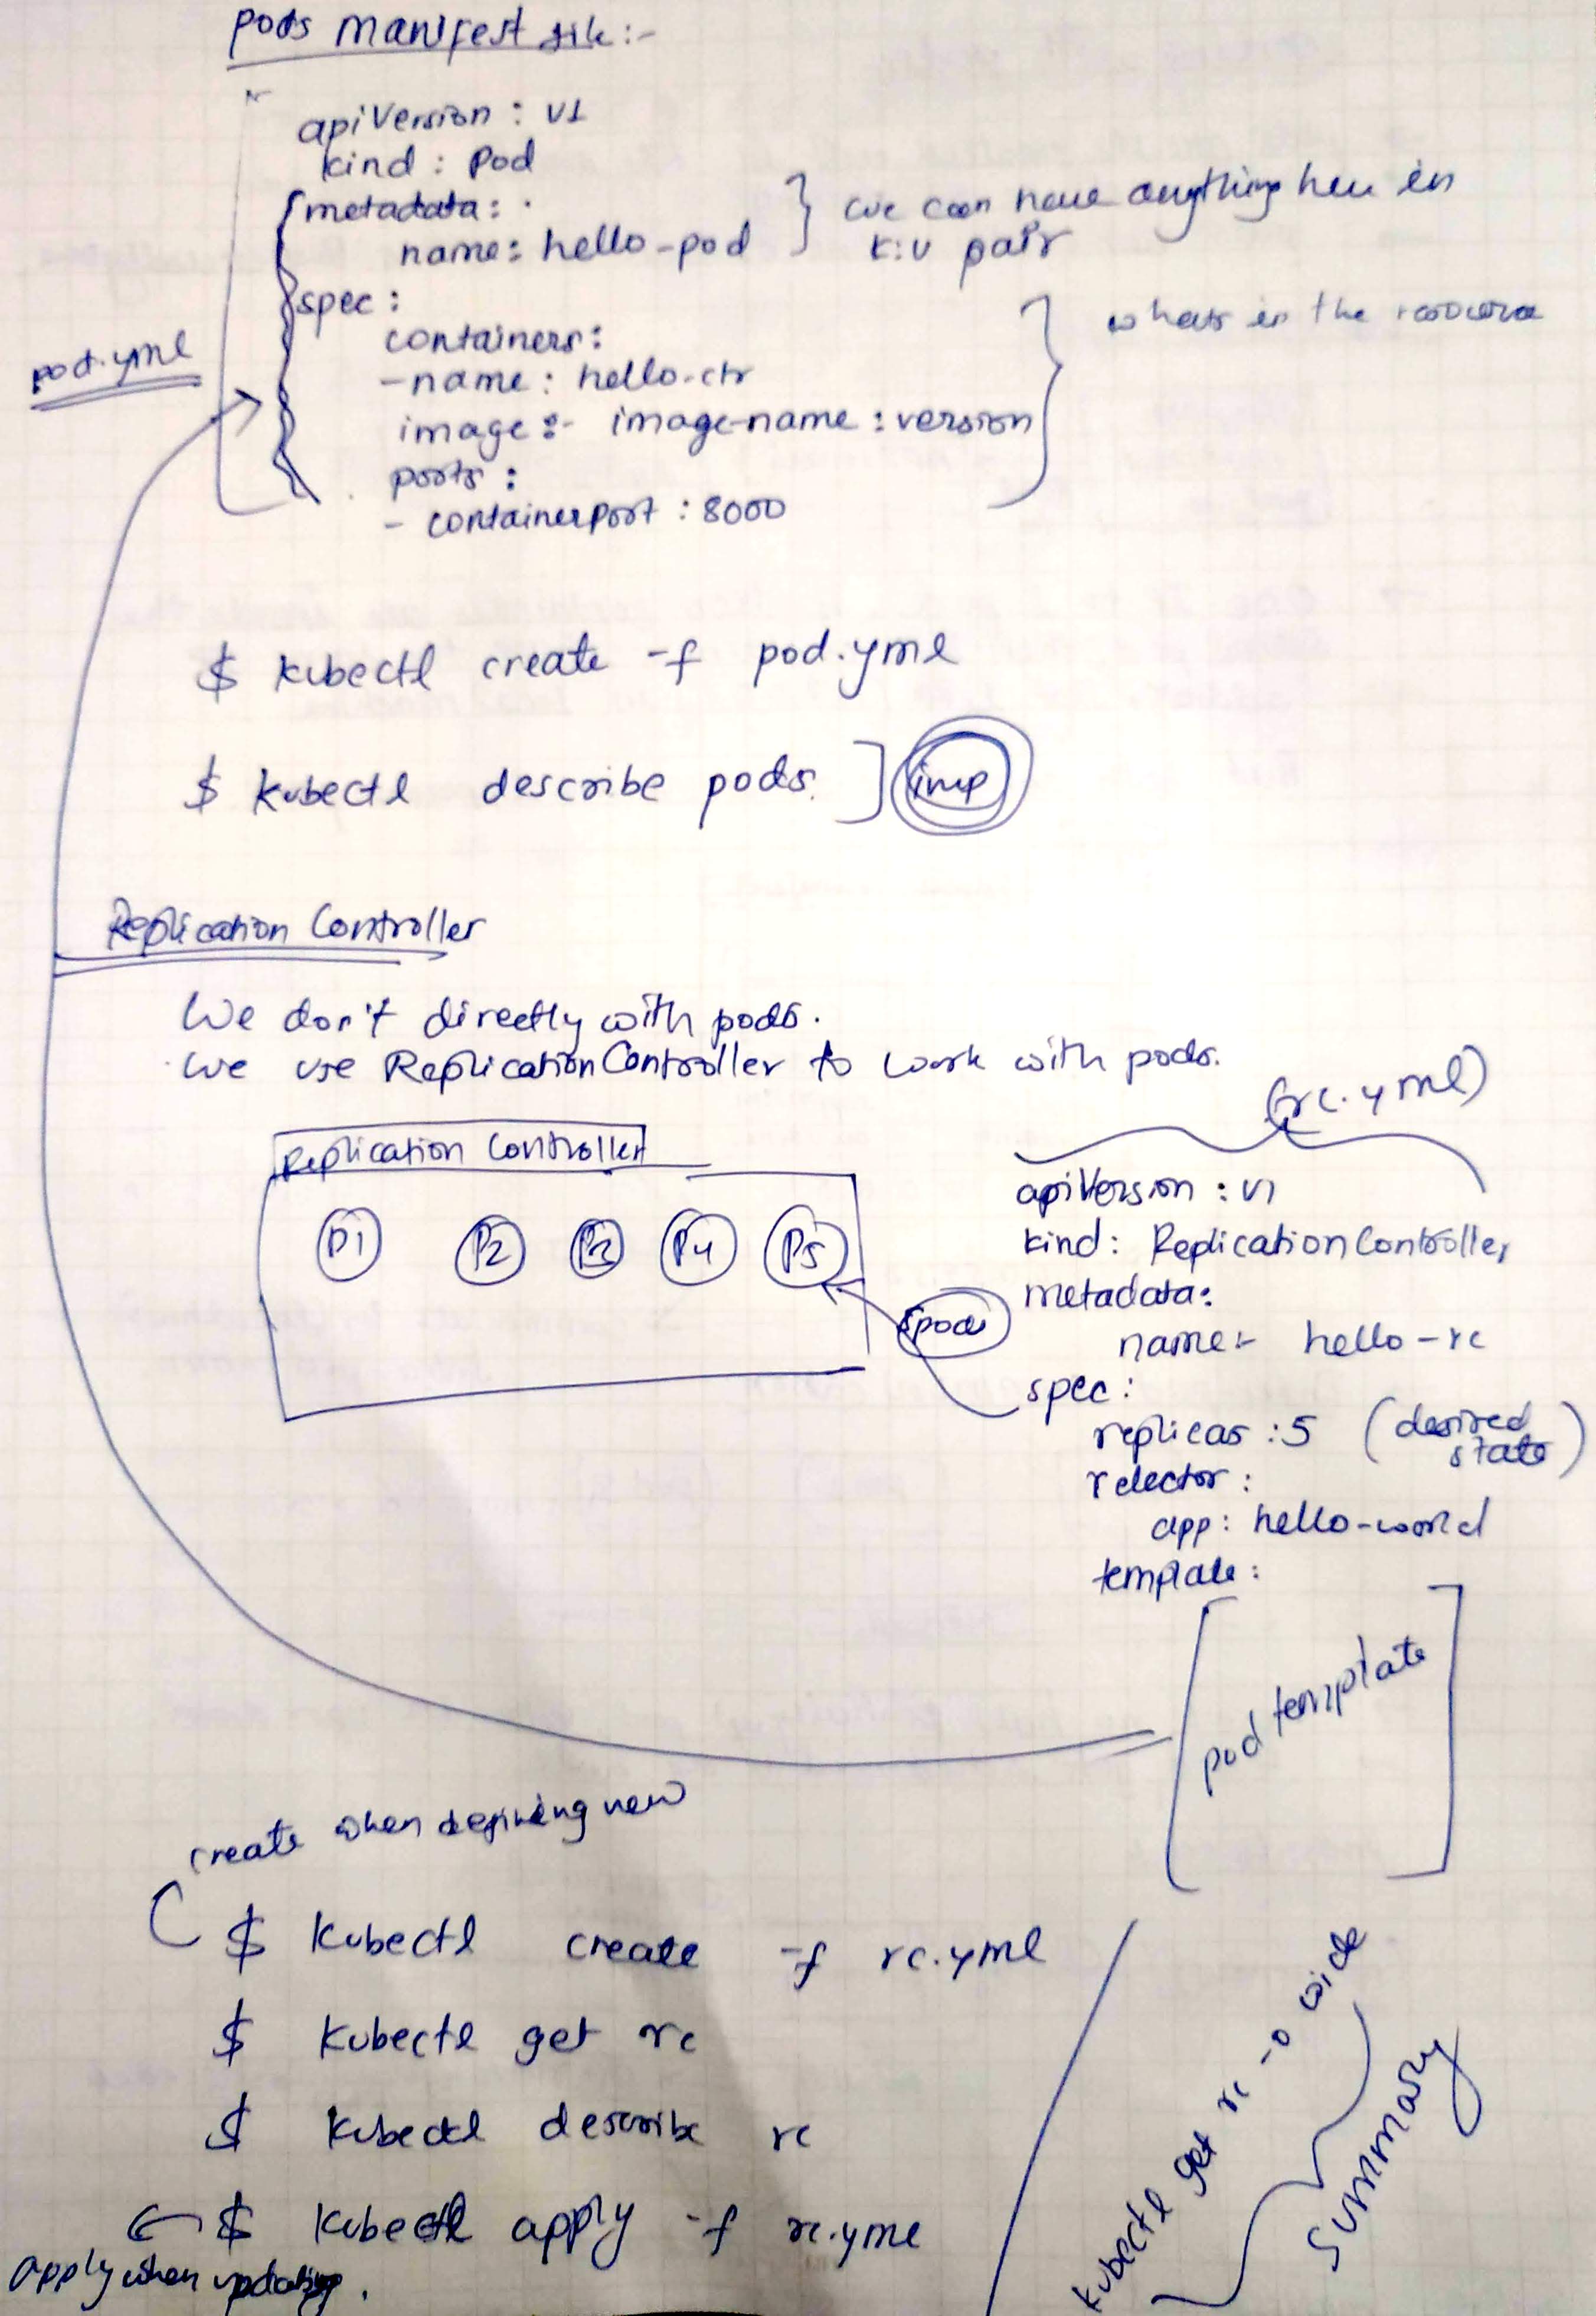 pods manifest file:-
apiVersion : v1
kind : Pod
metadata:
name: hello-pod
we can have anything here in
K:V pair
spec :
containers:
-name : hello-ctr
image :- image-name : version
ports :
- containerport : 8000
whats in the resource
pod.yml
$ kubectl create -f pod.yml
$ kubectl describe pods.
imp
Replication Controller
We don't directly with pods.
We use ReplicationController to work with pods.
Replication Controller
P1 P2 P3 P4 P5
5pods
(rc.yml)
apiVersion : v1
kind: ReplicationController
metadata:
name:- hello-rc
spec :
replicas : 5 (desired
state)
selector :
app: hello-world
template :
pod template
create when defining new
$ kubectl create -f rc.yml
$ kubectl get rc
$ kubectl describe rc
$ kubectl apply -f rc.yml
apply when updating.
kubectl get rc -o wide
summary